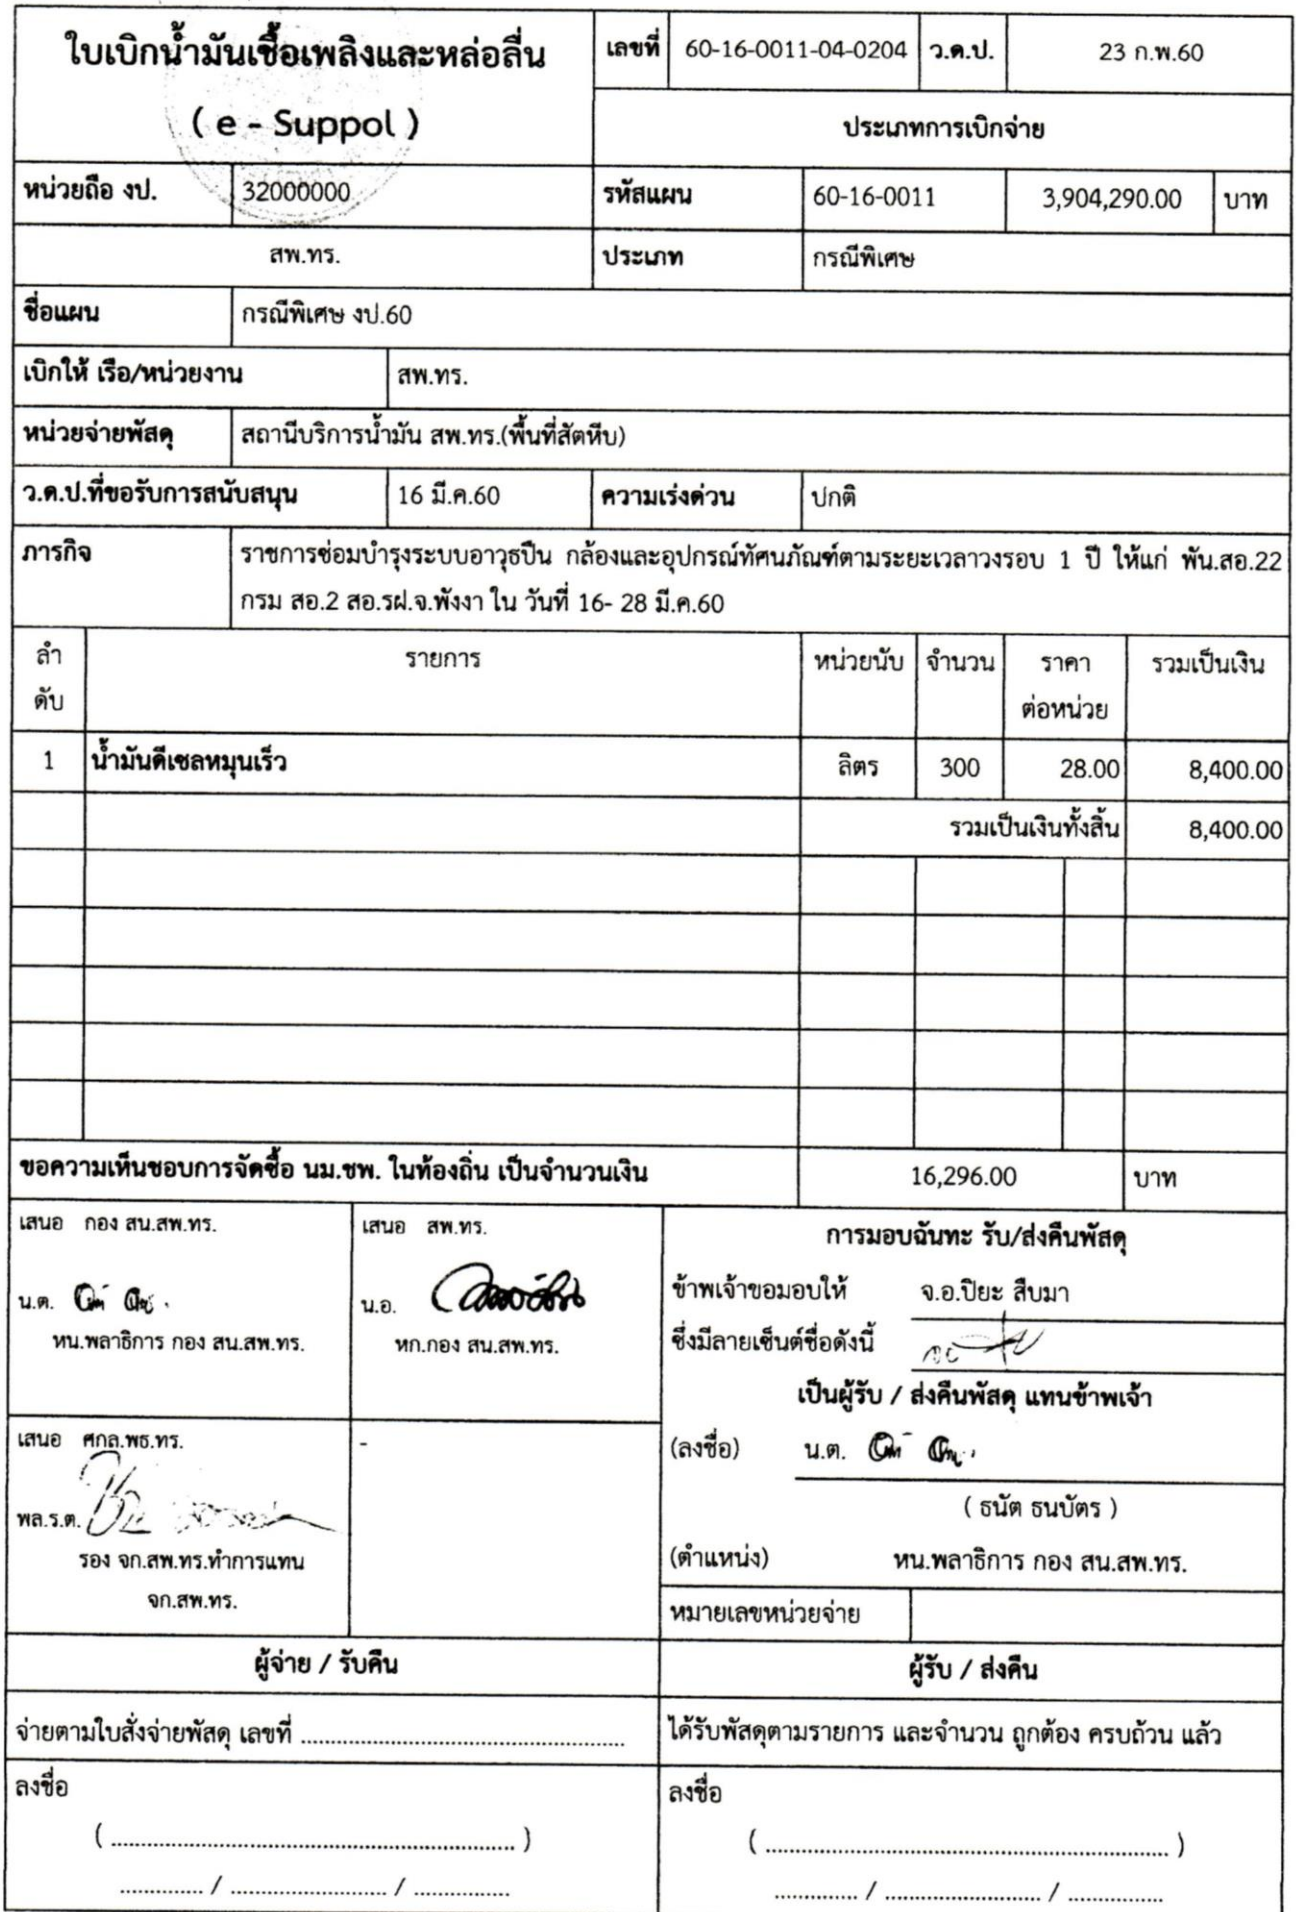 ใบเบิกน้ำมันเชื้อเพลิงและหล่อลื่น
( e - Suppol )
เลขที่ 60-16-0011-04-0204 ว.ด.ป. 23 ก.พ.60
ประเภทการเบิกจ่าย
หน่วยถือ งป. 32000000 รหัสแผน 60-16-0011 3,904,290.00 บาท
สพ.ทร. ประเภท กรณีพิเศษ
ชื่อแผน กรณีพิเศษ งป.60
เบิกให้ เรือ/หน่วยงาน สพ.ทร.
หน่วยจ่ายพัสดุ สถานีบริการน้ำมัน สพ.ทร.(พื้นที่สัตหีบ)
ว.ด.ป.ที่ขอรับการสนับสนุน 16 มี.ค.60 ความเร่งด่วน ปกติ
ภารกิจ ราชการซ่อมบำรุงระบบอาวุธปืน กล้องและอุปกรณ์ทัศนภัณฑ์ตามระยะเวลาวงรอบ 1 ปี ให้แก่ พัน.สอ.22
กรม สอ.2 สอ.รฝ.จ.พังงา ใน วันที่ 16- 28 มี.ค.60
ลำ รายการ หน่วยนับ จำนวน ราคา รวมเป็นเงิน
ดับ ต่อหน่วย
1 น้ำมันดีเซลหมุนเร็ว ลิตร 300 28.00 8,400.00
รวมเป็นเงินทั้งสิ้น 8,400.00
ขอความเห็นชอบการจัดซื้อ นม.ชพ. ในท้องถิ่น เป็นจำนวนเงิน 16,296.00 บาท
เสนอ กอง สน.สพ.ทร.
น.ต.
หน.พลาธิการ กอง สน.สพ.ทร.
เสนอ สพ.ทร.
น.อ.
หก.กอง สน.สพ.ทร.
การมอบฉันทะ รับ/ส่งคืนพัสดุ
ข้าพเจ้าขอมอบให้ จ.อ.ปิยะ สืบมา
ซึ่งมีลายเซ็นต์ชื่อดังนี้
เป็นผู้รับ / ส่งคืนพัสดุ แทนข้าพเจ้า
เสนอ ศกล.พธ.ทร.
พล.ร.ต.
รอง จก.สพ.ทร.ทำการแทน
จก.สพ.ทร.
-
(ลงชื่อ) น.ต.
( ธนัต ธนบัตร )
(ตำแหน่ง) หน.พลาธิการ กอง สน.สพ.ทร.
หมายเลขหน่วยจ่าย
ผู้จ่าย / รับคืน
ผู้รับ / ส่งคืน
จ่ายตามใบสั่งจ่ายพัสดุ เลขที่ ........................................................
ได้รับพัสดุตามรายการ และจำนวน ถูกต้อง ครบถ้วน แล้ว
ลงชื่อ
( ...................................................................... )
.............. / ........................... / ................
ลงชื่อ
( ...................................................................... )
.............. / ........................... / ................